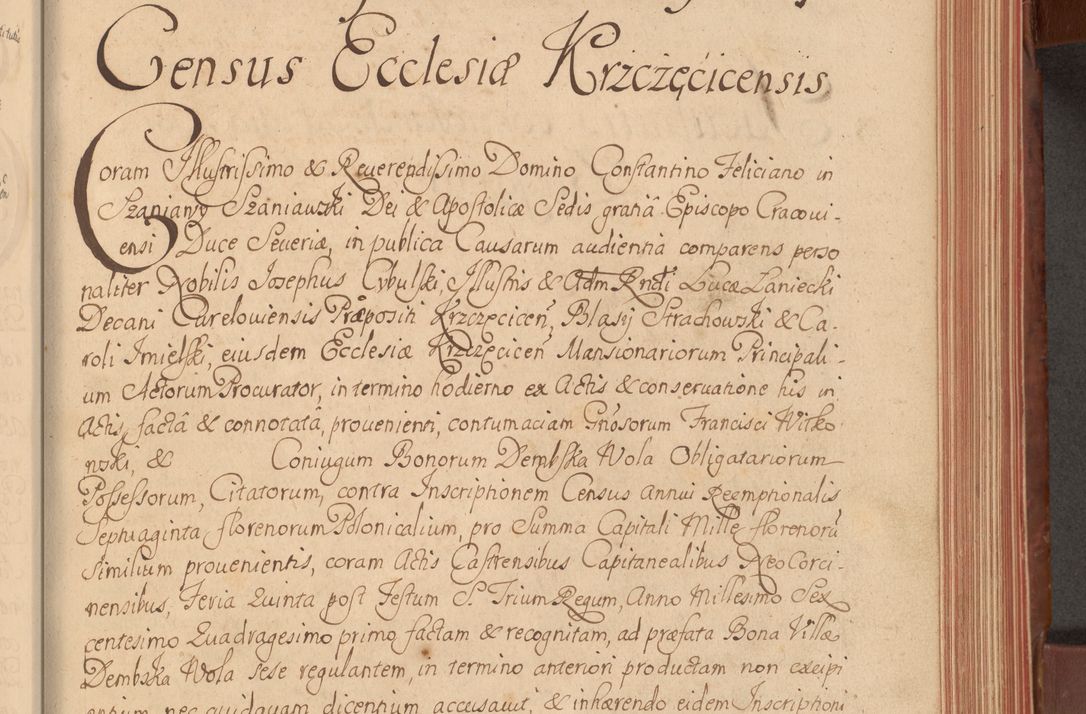 Census Ecclesiæ Krzczęcicensis
Coram Illustrissimo & Reverendissimo Domino Constantino Feliciano in
Szaniawy Szaniawski Dei & Apostolicæ Sedis gratiâ Episcopo Cracovi-
ensi Duce Severiæ, in publica Causarum audientia comparens perso
naliter Nobilis Josephus Cybulski, Illustris & Adm Rndi Lucæ Laniecki
Decani Cureloviensis Præpositi Krzczęcicen̄, Blasij Strachowski & Ca-
roli Imielski, eiusdem Ecclesiæ Krzczęcicen̄ Mansionariorum Principali-
um Actorum Procurator, in termino hodierno ex Actis & conservatione his in
Actis factâ & connotatâ, provenienti, contumaciam Gnosorum Francisci Witko
wski, & Coniugum Bonorum Dembska Wola Obligatariorum
Possessorum, Citatorum, contra Inscriptionem Census Annui Reemptionalis
Septuaginta florenorum Polonicalium, pro Summa Capitali Mille florenorū
similium provenientis, coram Actis Castrensibus Capitanealibus NeoCorci-
nensibus, Feria Quinta post Festum S. Trium Regum, Anno Millesimo Sex
centesimo Quadragesimo primo factam & recognitam, ad præfata Bona Villæ
Dembska Wola sese regulantem, in termino anteriori productam non excipi
entium nec quidquam dicentium accusavit, & inhærendo eidem Inscriptioni